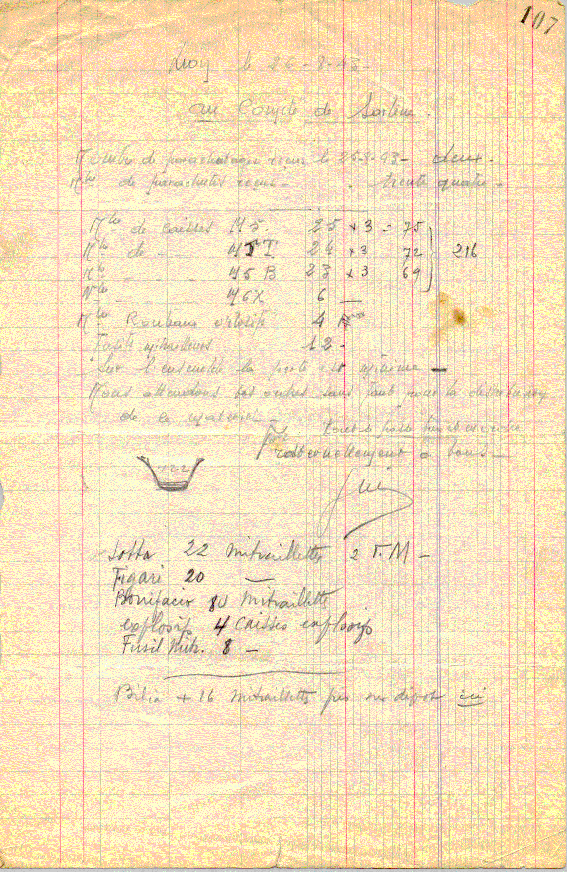 107
le 26-8-43-
au Compte de Sartène.
Nombre de parachutages reçus le 25-8-43- deux.
Nbre de parachutes reçus - trente quatre -
Nbre de Caisses M5. 25 x 3 = 75
Nbre de - M5 I 24 x 3 72 216
Nbre " - M5 B 23 x 3 69
Nbre - M6X 6 —
Nbre 4
Fusils mitrailleurs 12 -
Sur l'ensemble la perte est minime -
Nous attendons vos ordres sans faute pour la distribution
de ce matériel -
Fraternellement à vous -
Sotta 22 Mitraillettes 2 F.M -
Figari 20 —
Bonifacio 80 Mitraillette
explosifs 4 Caisses explosifs
Fusil Mitr. 8 -
+ 16 Mitraillettes sur dépôt ici